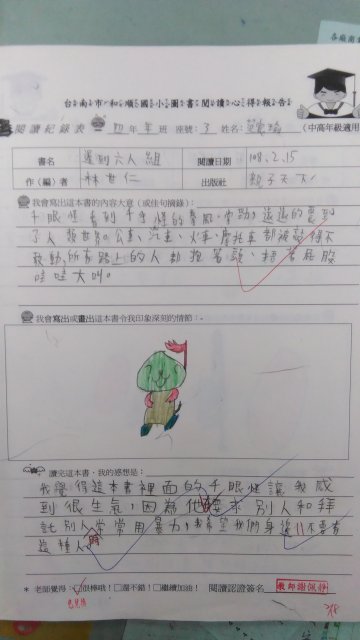 台南市和順國小圖書閱讀心得報告
閱讀紀錄表 四年 班 座號:3 姓名:
(中高年級適用
書名 遲到六人組 閱讀日期 108.2.15
作(編)者 林世仁 出版社 親子天下
我會寫出這本書的內容大意(或佳句摘錄):
千眼怪看到千手怪的
了人類世界。公車、汽車、火車、摩托車都被 得不
敢動,所有路上的人都抱著頭、 著屁股
哇哇大叫。
我會寫出或畫出這本書令我印象深刻的情節:
讀完這本書,我的感想是:
我覺得這本書裡面的千眼怪讓我感
到很生氣,因為他要求別人和拜
託別人常常用暴力,我希望我們身邊不要有
這種人
* 老師覺得: 很棒哦! 還不錯! 繼續加油! 閱讀認證簽名 教師謝佩靜
3/8